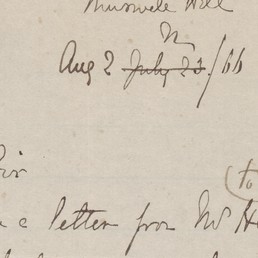 Muswell Hill
N
Aug 2 July 23/66
Sir
(to
a letter from Mr H